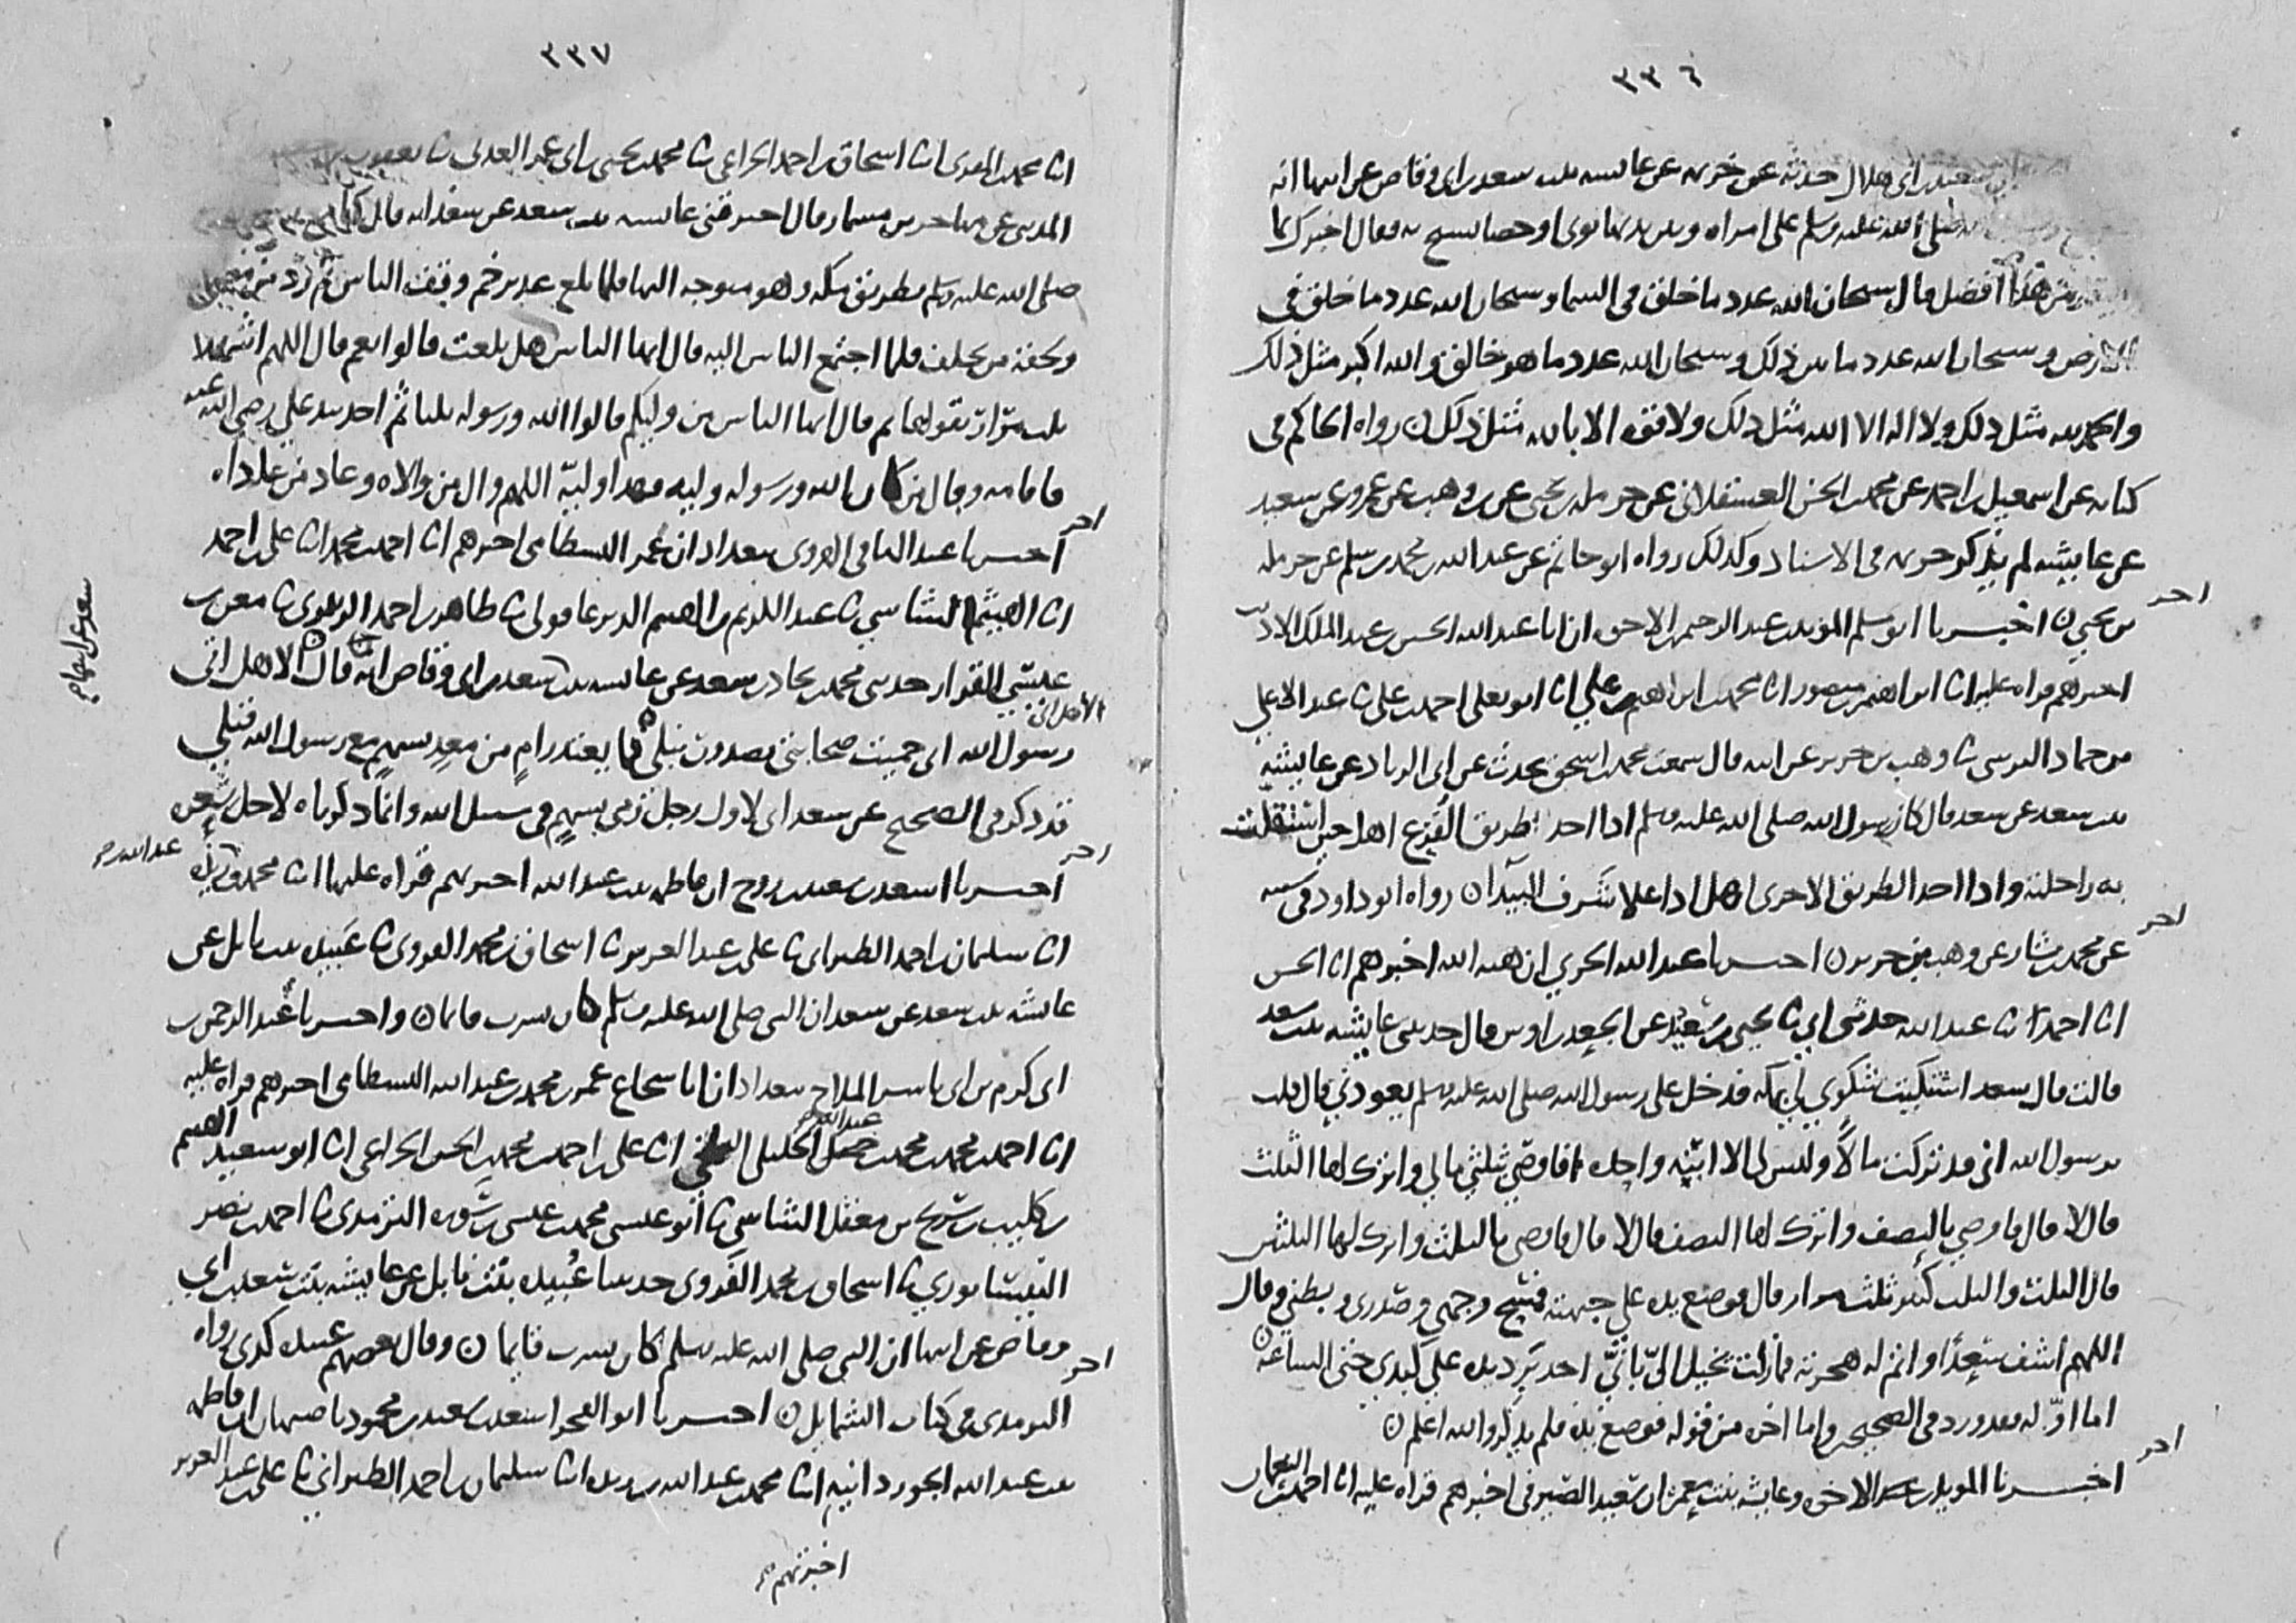 ٣٣٦
سعيد بن ابي هلال حدثه عن خزيمة عن عايشة بنت سعد بن ابي وقاص عن ابيها انه
صلى الله عليه وسلم على امراه وبين يديها نوى او حصا تسبح به فقال اخبرك بما
من هذا افضل قال سبحان الله عدد ما خلق في السما وسبحان الله عدد ما خلق في
الارض وسبحان الله عدد ما بين ذلك وسبحان الله عدد ما هو خالق والله اكبر مثل ذلك
والحمد لله مثل ذلك ولا اله الا الله مثل ذلك ولا قوه الا بالله مثل ذلك ن رواه الحاكم في
كتابه عن اسمعيل بن احمد عن محمد بن الحسن العسقلاني عن حرمله بن يحيى عن بن وهب عن عمرو عن سعيد
عن عايشه لم يذكر خزيمه في الاسناد وكذلك رواه ابو حاتم عن عبد الله بن محمد بن سلم عن حرمله
اخر
بن يحيى ن اخبرنا ابو مسلم المويد بن عبد الرحيم بن الاخوه ان ابا عبد الله الحسين بن عبد الملك الاديب
اخبرهم قراه عليه انا ابراهيم بن منصور انا محمد بن ابراهيم بن علي انا ابو يعلى احمد بن علي ثنا عبد الاعلى
بن حماد النرسي ثنا وهب بن جرير عن ابيه قال سمعت محمد بن اسحق يحدث عن ابي الزناد عن عايشه
بنت سعد عن سعد قال كان رسول الله صلى الله عليه وسلم اذا اخذ طريق الفرع اهل حين استقلت
به راحلته واذا اخذ الطريق الاخرى اهل اذا علا شرف البيدا ن رواه ابو داود في سننه
اخر
عن محمد بن بشار عن وهب بن جرير ن اخبرنا عبد الله الحربي ان هبه الله اخبرهم انا الحسن
انا احمد ثنا عبد الله حدثني ابي ثنا يحيى بن سعيد عن الجعد بن اوس قال حدثتني عايشه بنت سعد
قالت قال سعد اشتكيت شكوى لي بمكه فدخل على رسول الله صلى الله عليه وسلم يعودني قال قلت
يرسول الله اني قد تركت مالا وليس لي الا ابنه واحده افاوصي بثلثي مالي واترك لها الثلث
قال لا قال فاوصي بالنصف واترك لها النصف قال لا قال فاوصي بالثلث واترك لها الثلثين
قال الثلث والثلث كثير ثلث مرار قال فوضع يده على جبهته فمسح وجهي وصدري وبطني وقال
اللهم اشف سعدا واتم له هجرته فمازلت تخيل الي باني اجد برد يده على كبدي حتى الساعه ن
اما اوله فقد ورد في الصحيح واما اخره من قوله فوضع يده فلم يذكر والله اعلم ن
اخر
اخبرنا المويد بن الاخوه وعايشه بنت معمر ان سعيد الصيرفي اخبرهم قراه عليه انا احمد بن النعمان
٣٣٧
انا محمد بن المقرئ انا اسحاق بن احمد الخزاعي ثنا محمد بن يحيى بن ابي عمر العدني ثنا يعقوب بن
المدني عن مهاجر بن مسمار قال اخبرتني عايشه بنت سعد عن سعد انه قال كنا
صلى الله عليه وسلم بطريق مكه وهو متوجه اليها فلما بلغ غدير خم وقف الناس ثم رد من
ولحقه من تخلف فلما اجتمع الناس اليه قال ايها الناس هل بلغت قالوا نعم قال اللهم اشهد
ثلث مرار يقولها ثم قال ايها الناس من وليكم قالوا الله ورسوله ثلثا ثم اخذ بيد علي رضي الله عنه
فاقامه وقال من كان الله ورسوله وليه فهذا وليه اللهم وال من والاه وعاد من عاداه
اخر
اخبرنا عبد الباقي الهروي ببغداد ان عمر البسطامي اخبرهم انا احمد بن محمد انا علي بن احمد
انا الهيثم الشاشي ثنا عبد الكريم بن الهيثم الديرعاقولي ثنا طاهر بن احمد ثنا معن بن
سعد عن ابيها
عيسى القزاز حدثني محمد بن بجاد بن سعد عن عايشه بنت سعد بن ابي وقاص انه قال الا هل اتى
الا هل اتى
رسول الله اني حميت صحابتي بصدور نبلي فما يعتد رام من معد بسهم مع رسول الله قبلي
قد ذكر في الصحيح عن سعد اني لاول رجل رمى بسهم في سبيل الله وانما ذكرناه لاجل شعره
اخر
اخبرنا اسعد بن سعيد بن روح ان فاطمه بنت عبد الله اخبرتهم قراه عليها انا محمد بن ريذه
عبد الله بن
انا سليمان بن احمد الطبراني ثنا علي بن عبد العزيز ثنا اسحاق بن محمد الفروي ثنا عبيده بنت نابل عن
عايشه بنت سعد عن سعد ان النبي صلى الله عليه وسلم كان يشرب قايما ن واخبرنا عبد الرحمن بن
ابي كرم بن ابي ياسر الملاح ببغداد ان ابا شجاع عمر بن محمد بن عبد الله البسطامي اخبرهم قراه عليه
انا احمد بن محمد بن محمد الخليلي انا علي بن احمد بن محمد بن الحسن الخزاعي انا ابو سعيد الهيثم
بن كليب بن شريح بن معقل الشاشي ثنا ابو عيسى محمد بن عيسى بن سوره الترمذي ثنا احمد بن نصر
النيسابوري ثنا اسحاق بن محمد الفروي حدثتنا عبيده بنت نابل عن عايشه بنت سعد بن ابي
وقاص عن ابيها ان النبي صلى الله عليه وسلم كان يشرب قايما ن وقال بعضهم عبيده كذي رواه
اخر
الترمذي في كتاب الشمايل ن اخبرنا ابو الفخر اسعد بن سعيد بن محمود باصبهان ان فاطمه
بنت عبد الله الجوزدانيه انا محمد بن عبد الله بن ريذه انا سليمان بن احمد الطبراني ثنا علي بن عبد العزيز
اخبرتهم